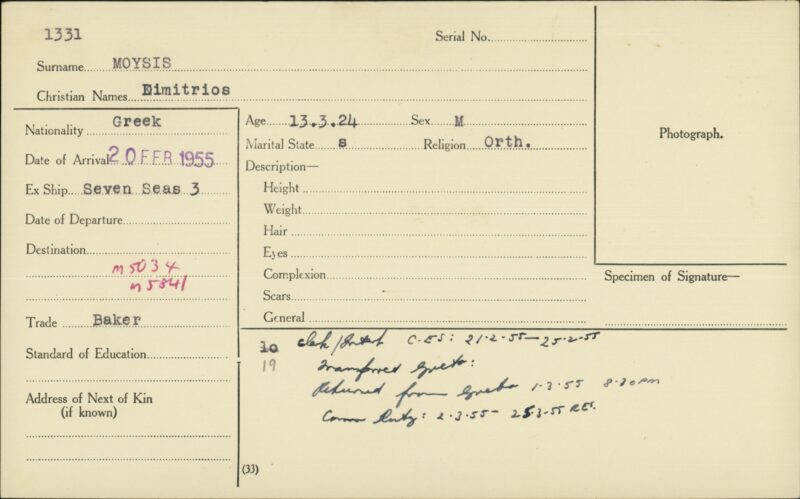 1331
Serial No.
Surname MOYSIS
Christian Names Dimitrios
Nationality Greek
Date of Arrival 20 FEB 1955
Ex Ship Seven Seas 3
Date of Departure
Destination
M 5034
M 5841
Trade Baker
Standard of Education
Address of Next of Kin
(if known)
Age 13.3.24 Sex M
Marital State s Religion Orth.
Description—
Height
Weight
Hair
Eyes
Complexion
Scars
General
Photograph.
Specimen of Signature—
10 C.E.S: 21-2-55 — 25-2-55
19 Transferred Greta:
Returned from Greta 1-3-55 8-30 PM
2-3-55 -
(33)